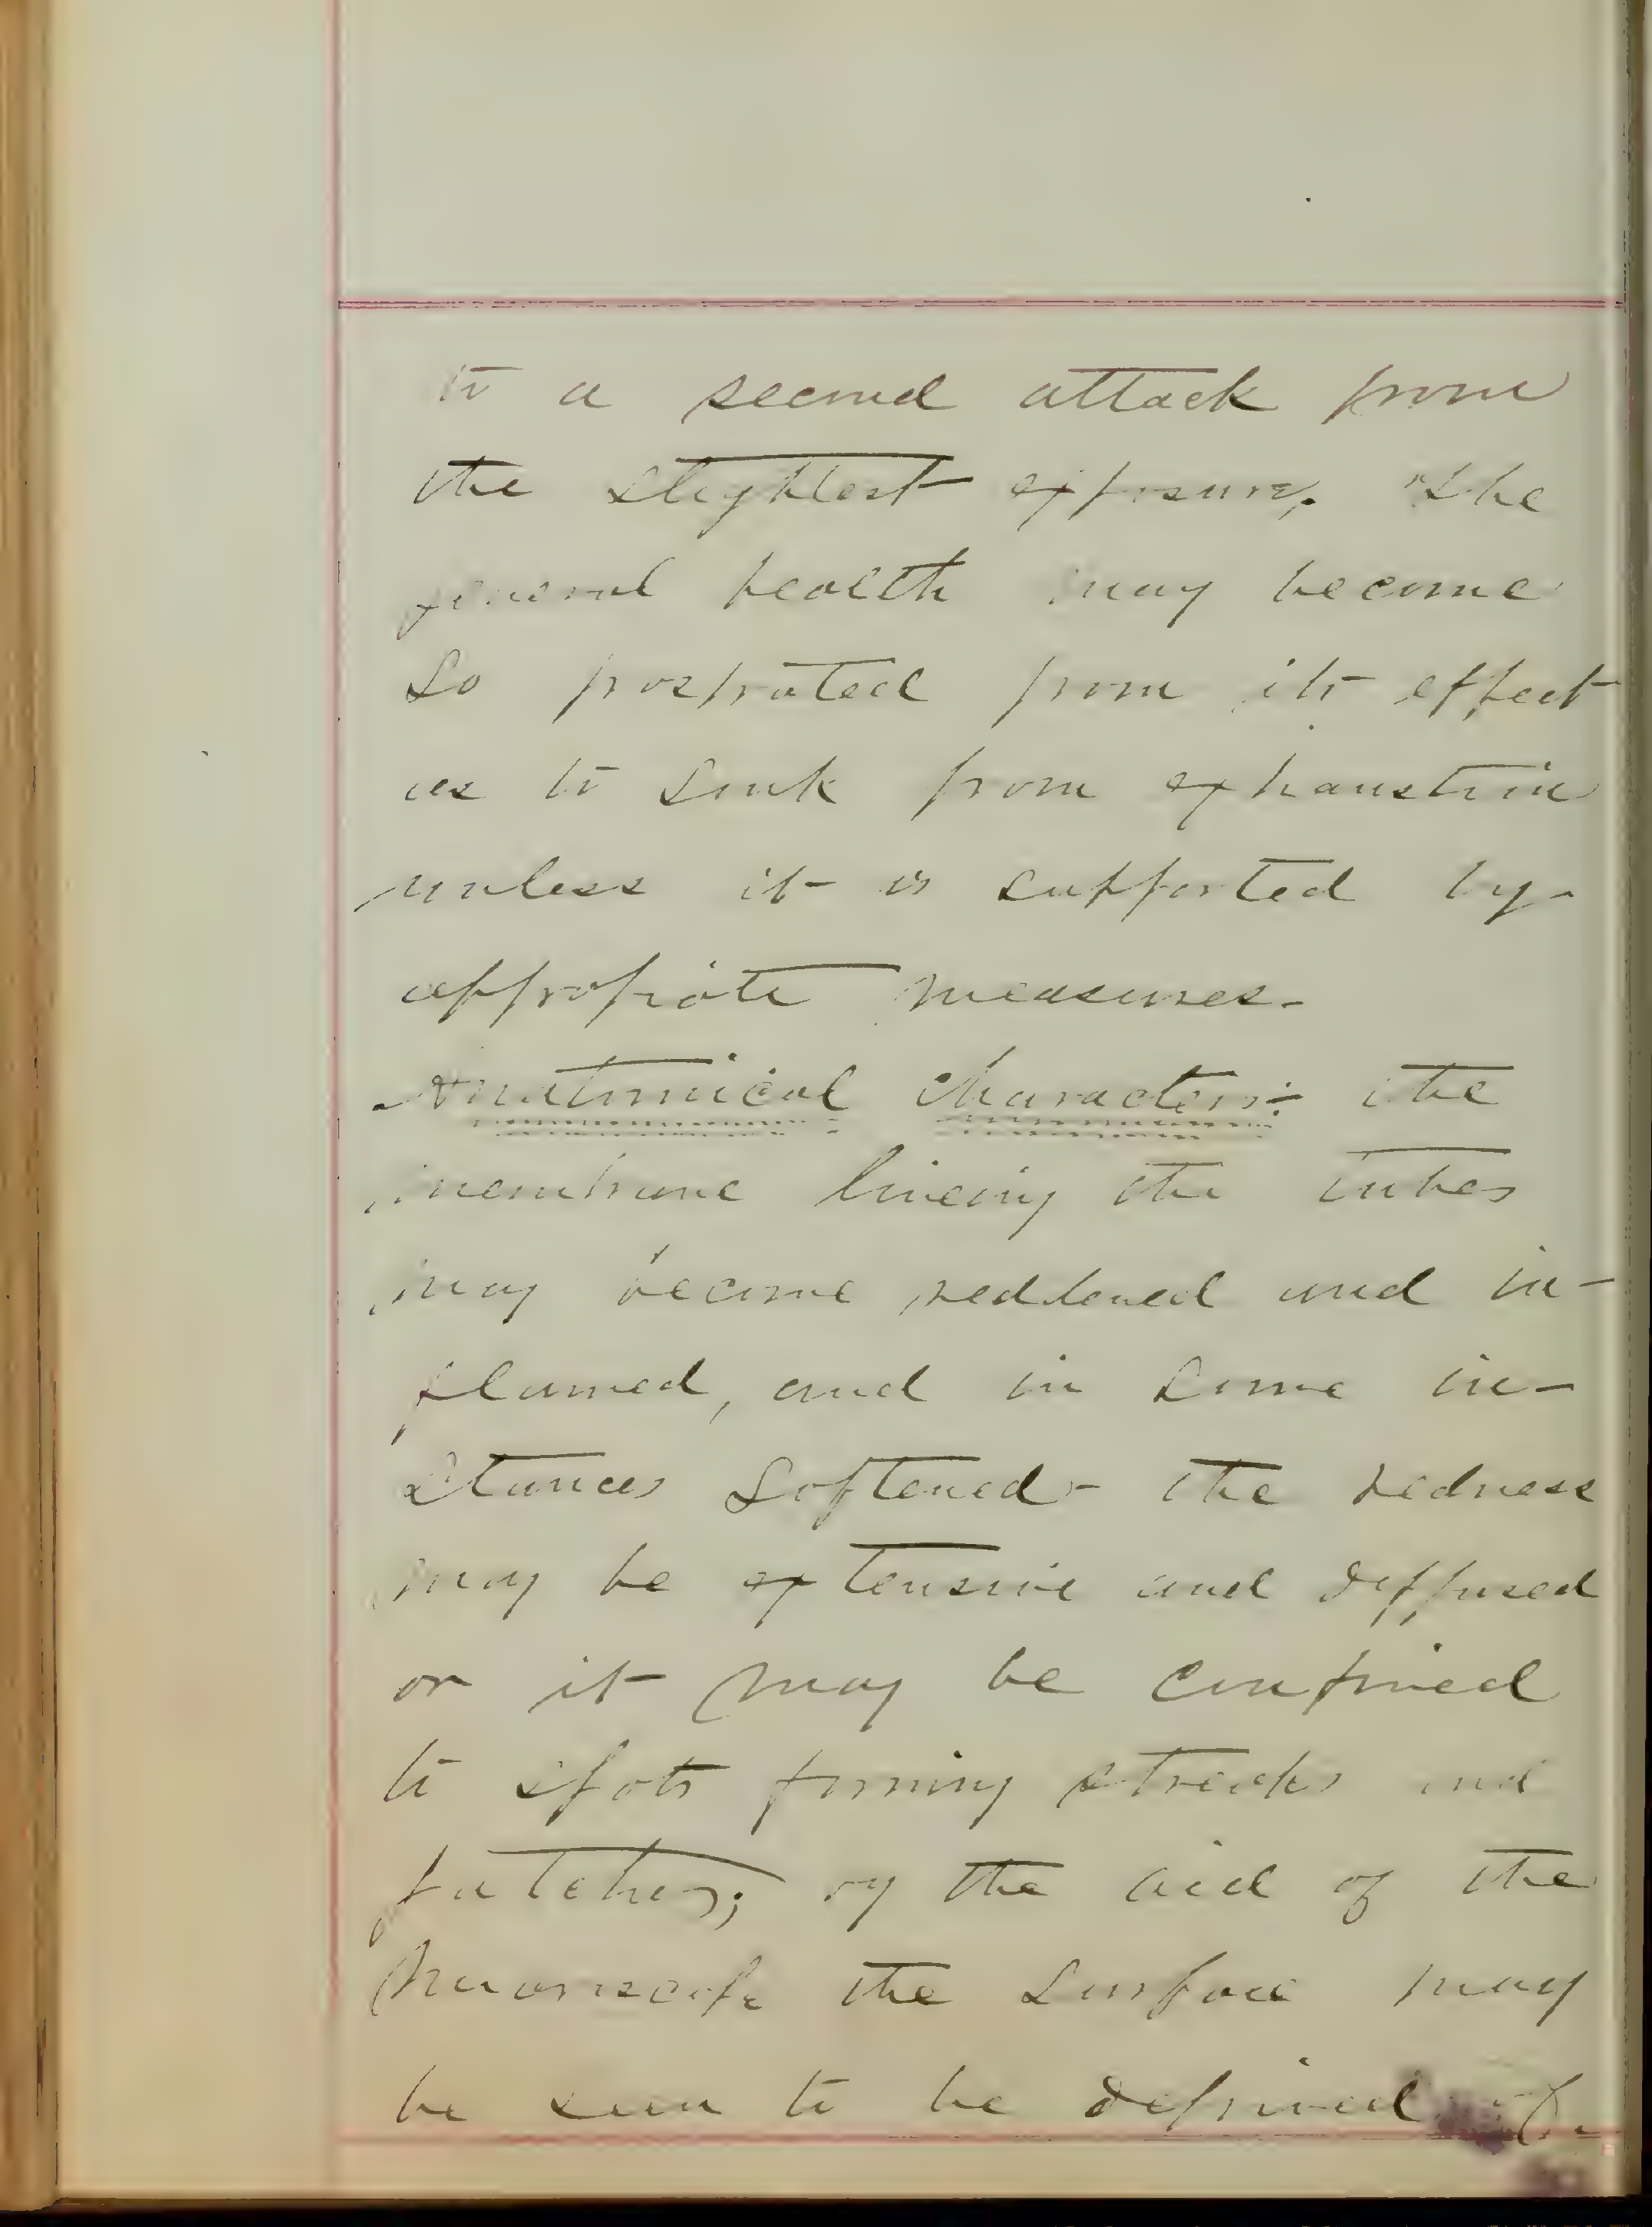 to a second attack from
the slightest exposure, The
general health may become
so postrated from its effect
as to sink from exhaustion
unless it is supported by
appropiate measures.
Anatomical characters: the
membrane lineing the tubes
may become reddened and in-
flamed, and in some in-
stances softened- the redness
may be extensive and diffused
or it may be confined
to spots forming streaks and
patches; by the aid of the
the surface may
be seen to be deprived of